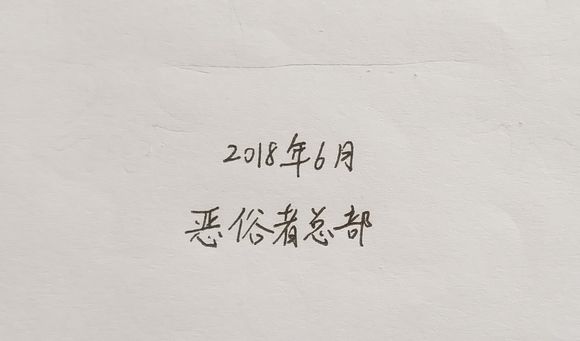 2018年6月
恶俗者总部